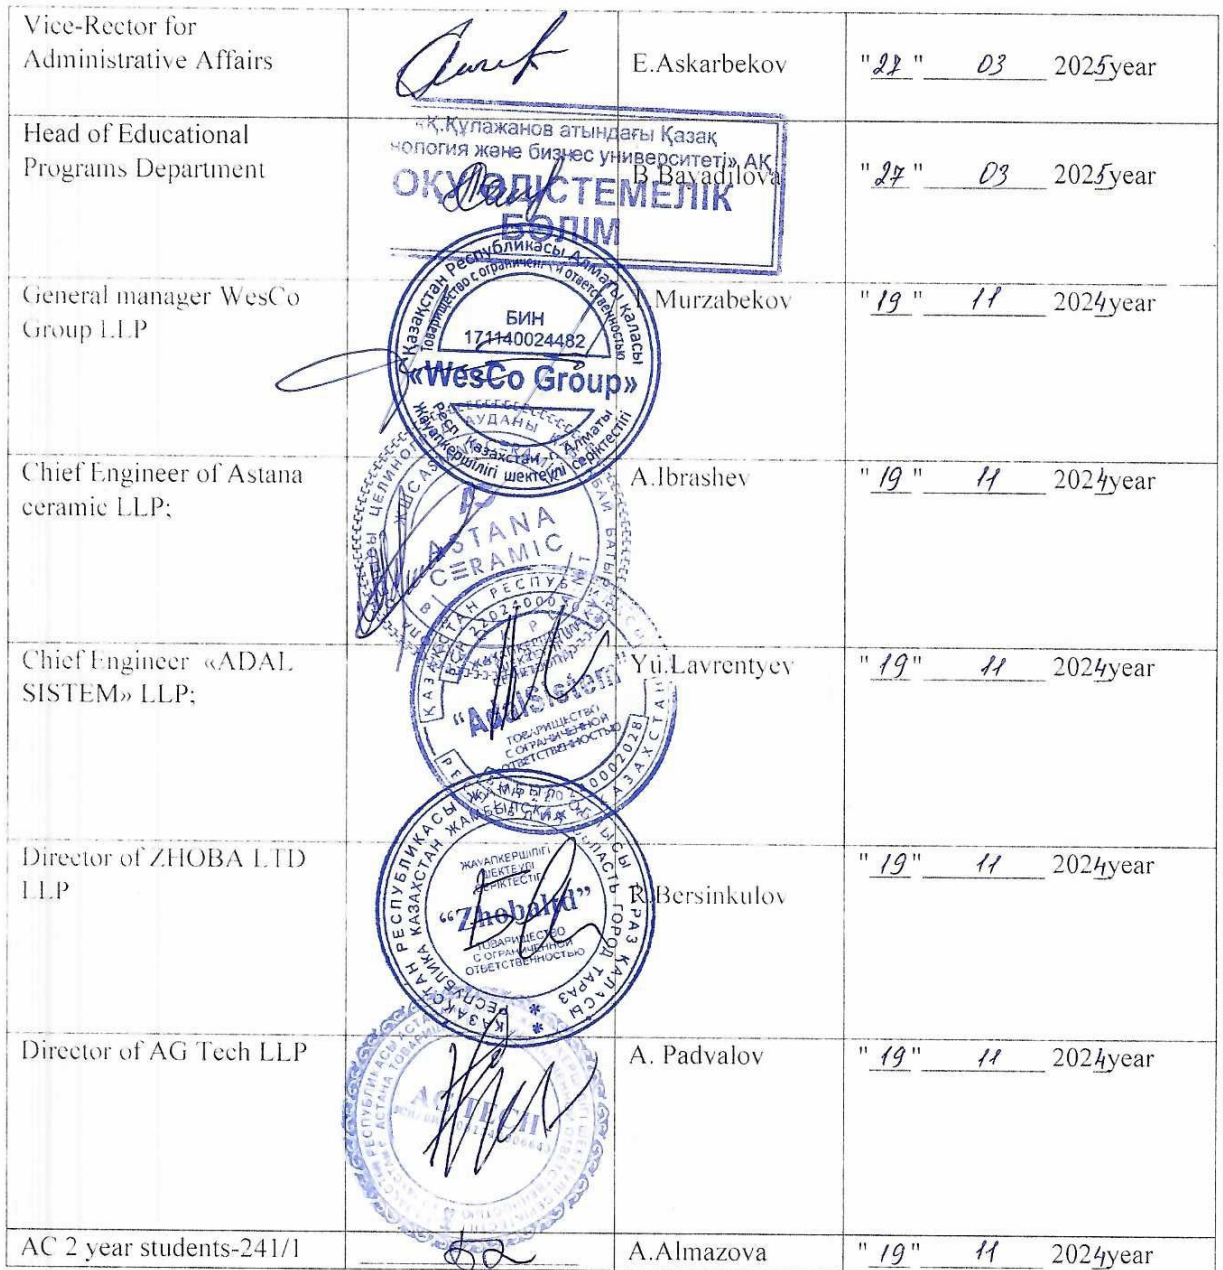 Vice-Rector for
Administrative Affairs
E.Askarbekov
"27" 03 2025year
Head of Educational
Programs Department
«Қ.Құлажанов атындағы Қазақ
нология және бизнес университеті» АҚ
ОҚУ ӘДІСТЕМЕЛІК
БӨЛІМ
B.Bayadilova
"27" 03 2025year
General manager WesCo
Group LLP
Қазақстан Республикасы Алматы қаласы
Товарищество с ограниченной ответственностью
БИН
171140024482
«WesCo Group»
Респ. Казахстан г. Алматы
Жауапкершілігі шектеулі серіктестігі
Murzabekov
"19" 11 2024year
Chief Engineer of Astana
ceramic LLP;
ASTANA
CERAMIC
A.Ibrashev
"19" 11 2024year
Chief Engineer «ADAL
SISTEM» LLP;
"AdalSistem"
ТОВАРИЩЕСТВО
С ОГРАНИЧЕННОЙ
ОТВЕТСТВЕННОСТЬЮ
Yu.Lavrentyev
"19" 11 2024year
Director of ZHOBA LTD
LLP
ҚАЗАҚСТАН РЕСПУБЛИКАСЫ ЖАМБЫЛ ОБЛЫСЫ ТАРАЗ ҚАЛАСЫ
РЕСПУБЛИКА КАЗАХСТАН ЖАМБЫЛСКАЯ ОБЛАСТЬ ГОРОД ТАРАЗ
ЖАУАПКЕРШІЛІГІ
ШЕКТЕУЛІ
СЕРІКТЕСТІГІ
"Zhobaltd"
ТОВАРИЩЕСТВО
С ОГРАНИЧЕННОЙ
ОТВЕТСТВЕННОСТЬЮ
R.Bersinkulov
"19" 11 2024year
Director of AG Tech LLP
AG TECH
A. Padvalov
"19" 11 2024year
AC 2 year students-241/1
A.Almazova
"19" 11 2024year